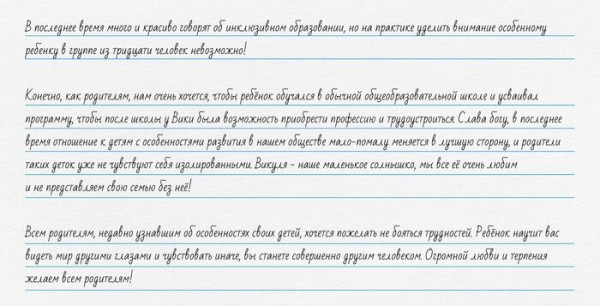 В последнее время много и красиво говорят об инклюзивном образовании, но на практике уделить внимание особенному
ребенку в группе из тридцати человек невозможно!
Конечно, как родителям, нам очень хочется, чтобы ребёнок обучался в обычной общеобразовательной школе и усваивал
программу, чтобы после школы у Вики была возможность приобрести профессию и трудоустроиться. Слава богу, в последнее
время отношение к детям с особенностями развития в нашем обществе мало-помалу меняется в лучшую сторону, и родители
таких деток уже не чувствуют себя изолированными. Викуля - наше маленькое солнышко, мы все её очень любим
и не представляем свою семью без неё!
Всем родителям, недавно узнавшим об особенностях своих детей, хочется пожелать не бояться трудностей. Ребёнок научит вас
видеть мир другими глазами и чувствовать иначе, вы станете совершенно другим человеком. Огромной любви и терпения
желаем всем родителям!